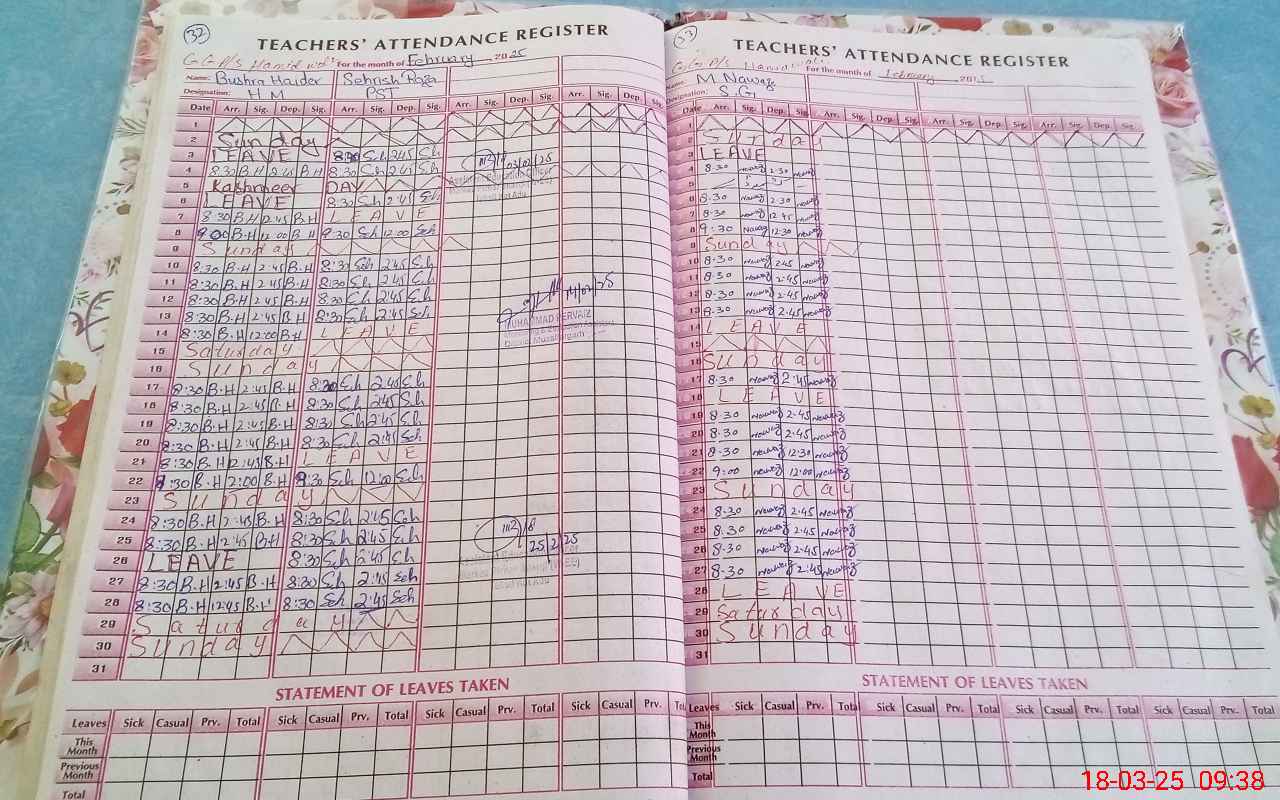 32
TEACHERS' ATTENDANCE REGISTER
For the month of February 2025
Name: Bushra Haider Sehrish Raza
Designation: H.M PST
Date Arr. Sig. Dep. Sig. Arr. Sig. Dep. Sig. Arr. Sig. Dep. Sig. Arr. Sig. Dep. Sig.
1
2 Sunday
3 LEAVE 8:30 Sch 2:45 Sch
4 8:30 B.H 2:45 B.H 8:30 Sch 2:45 Sch
5 Kashmeer DAY
6 LEAVE 8:30 Sch 2:45 Sch
7 8:30 B.H 2:45 B.H LEAVE
8 9:00 B.H 12:00 B.H 9:30 Sch 12:00 Sch
9 Sunday
10 8:30 B.H 2:45 B.H 8:30 Sch 2:45 Sch
11 8:30 B.H 2:45 B.H 8:30 Sch 2:45 Sch
12 8:30 B.H 2:45 B.H 8:30 Sch 2:45 Sch
13 8:30 B.H 2:45 B.H 8:30 Sch 2:45 Sch
14 8:30 B.H 12:00 B.H LEAVE
15 Saturday
16 Sunday
17 8:30 B.H 2:45 B.H 8:30 Sch 2:45 Sch
18 8:30 B.H 2:45 B.H 8:30 Sch 2:45 Sch
19 8:30 B.H 2:45 B.H 8:30 Sch 2:45 Sch
20 8:30 B.H 2:45 B.H 8:30 Sch 2:45 Sch
21 8:30 B.H 2:45 B.H LEAVE
22 B.H 2:00 B.H 9:30 Sch 12:00 Sch
23 Sunday
24 8:30 B.H 2:45 B.H 8:30 Sch 2:45 Sch
25 8:30 B.H 2:45 B.H 8:30 Sch 2:45 Sch
26 LEAVE 8:30 Sch 2:45 Sch
27 8:30 B.H 2:45 B.H 8:30 Sch 2:45 Sch
28 8:30 B.H 12:45 B.H 8:30 Sch 2:45 Sch
29 Saturday
30 Sunday
31
03/02/25
14/02/25
MUHAMMAD PERVAIZ
District Muzaffargarh
25/2/25
STATEMENT OF LEAVES TAKEN
Leaves Sick Casual Prv. Total Sick Casual Prv. Total Sick Casual Prv. Total Sick Casual Prv. Total
This Month
Previous Month
Total
33
TEACHERS' ATTENDANCE REGISTER
For the month of February
Name: M Nawaz
Designation: S.G
Date Arr. Sig. Dep. Sig. Arr. Sig. Dep. Sig. Arr. Sig. Dep. Sig. Arr. Sig. Dep. Sig.
1
2 Sunday
3 LEAVE
4 8:30 Nawaz 2:30 Nawaz
5
6 8:30 Nawaz 2:30 Nawaz
7 8:30 Nawaz 12:45 Nawaz
8 9:30 Nawaz 12:30 Nawaz
9 Sunday
10 8:30 Nawaz 2:45 Nawaz
11 8:30 Nawaz 2:45 Nawaz
12 8:30 Nawaz 2:45 Nawaz
13 8:30 Nawaz 2:45 Nawaz
14 LEAVE
15
16 Sunday
17 8:30 Nawaz 2:45 Nawaz
18 LEAVE
19 8:30 Nawaz 2:45 Nawaz
20 8:30 Nawaz 2:45 Nawaz
21 8:30 Nawaz 12:30 Nawaz
22 9:00 Nawaz 12:00 Nawaz
23 Sunday
24 8:30 Nawaz 2:45 Nawaz
25 8:30 Nawaz 2:45 Nawaz
26 8:30 Nawaz 2:45 Nawaz
27 8:30 Nawaz 2:45 Nawaz
28 LEAVE
29 Saturday
30 Sunday
31
STATEMENT OF LEAVES TAKEN
Leaves Sick Casual Prv. Total Sick Casual Prv. Total Sick Casual Prv. Total Sick Casual Prv. Total
This Month
Previous Month
Total
18-03-25 09:38